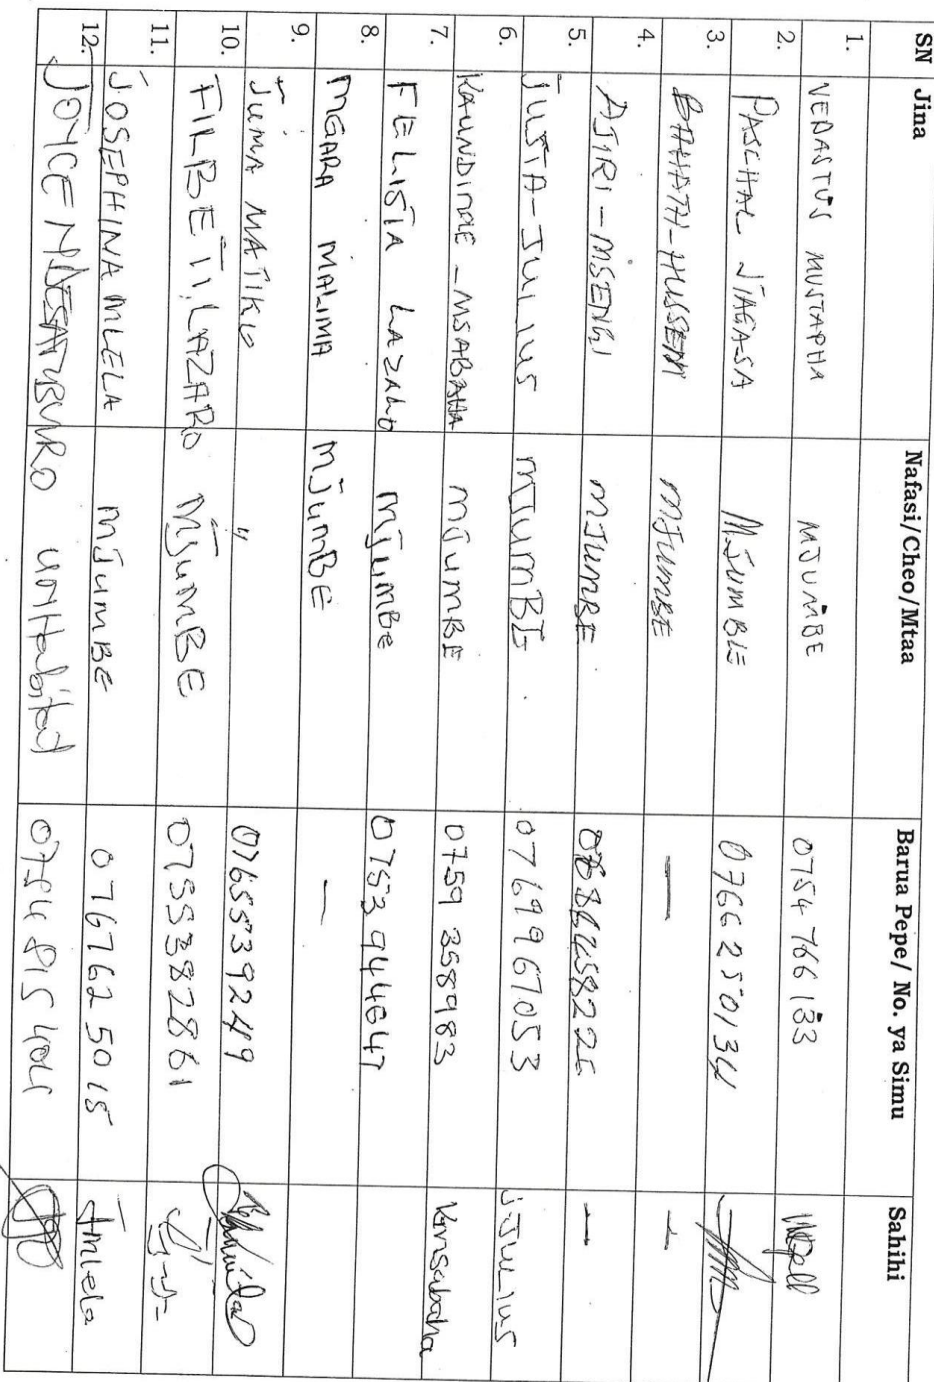 SN Jina Nafasi/Cheo/Mtaa Barua Pepe/ No. ya Simu Sahihi
1. VEDASTUS MUSTAPHA MJUMBE 0754 766 133
2. PASCHAL MJUMBE 0766250134
3. BAHATI-HUSSEIN MJUMBE —
4. AJIRI-MSENGI MJUMBE —
5. JUSTA-JULIUS MJUMBE 0769967053 J.JULIUS
6. KAUNDIME-MSABAHA MJUMBE 0759 358983 Kmsabaha
7. FELISTA LAZARO MJUMBE 0753944647
8. MGARA MALIMA MJUMBE —
9. JUMA MATIKO " 0765539249
10. LAZARO MJUMBE 0755382861
11. JOSEPHINA MLELA MJUMBE 0767625015 Jmlela
12. JOYCE UNHabitat 0784 815 404